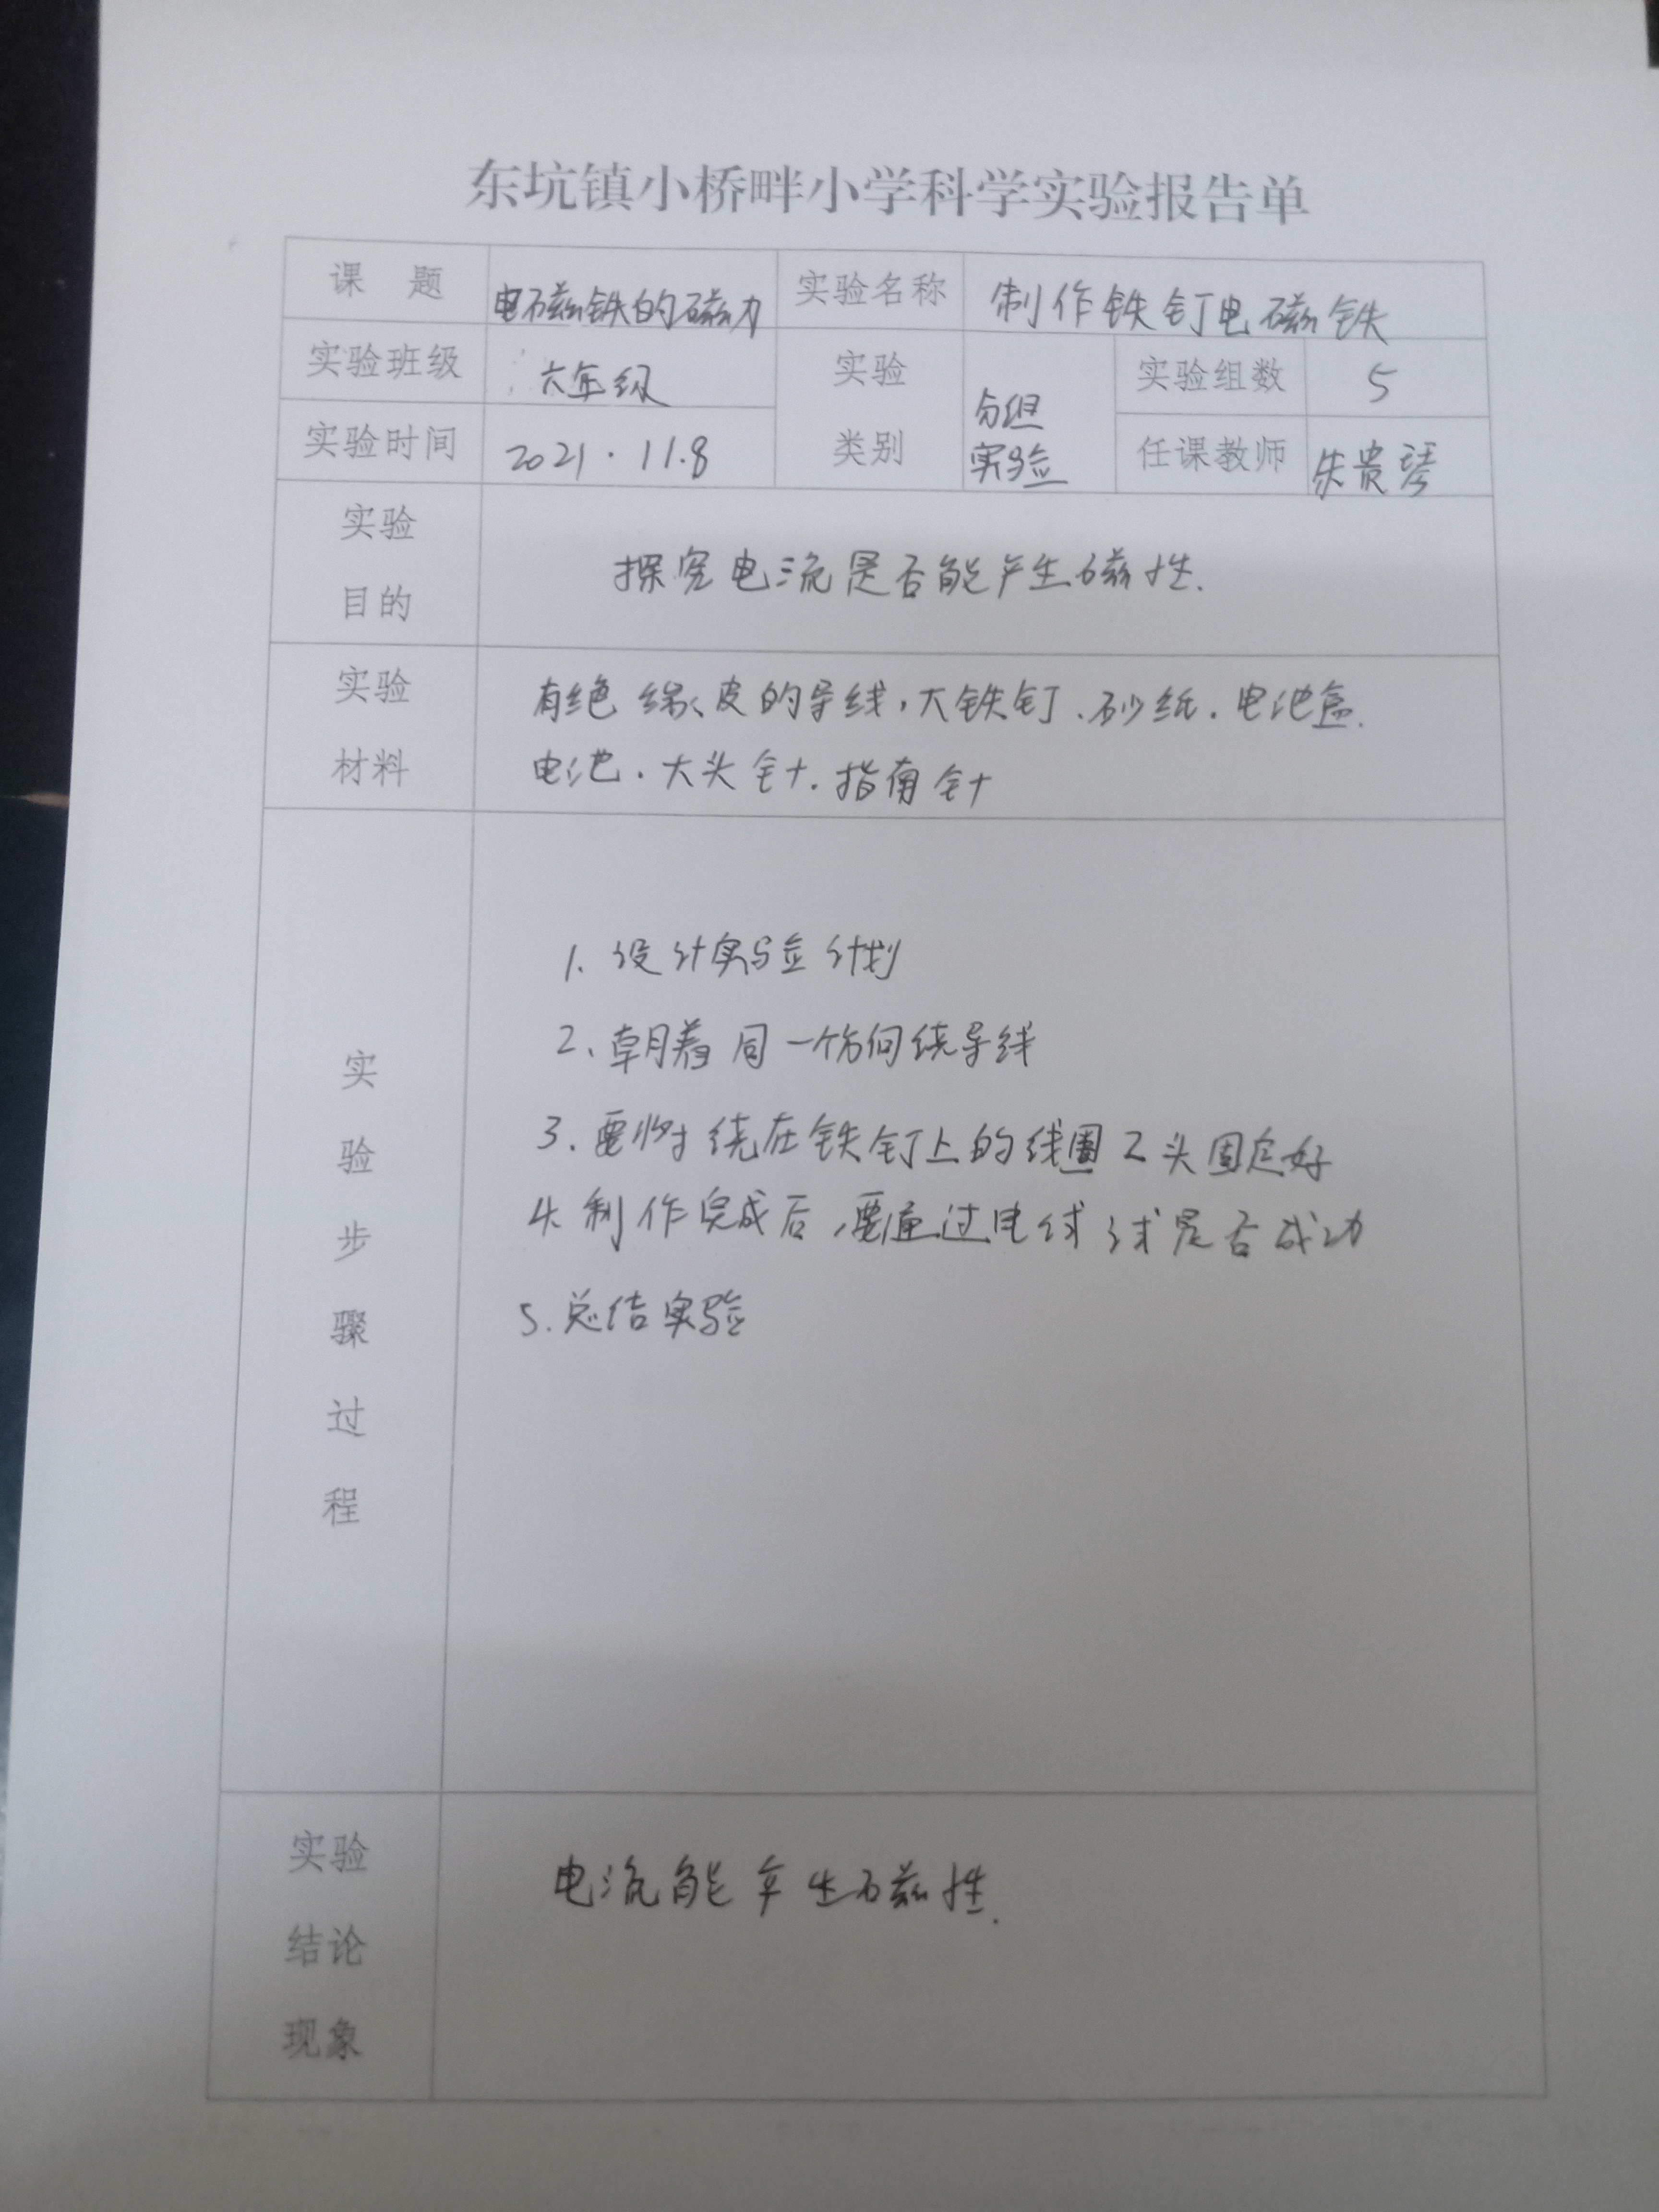 东坑镇小桥畔小学科学实验报告单
课 题 电磁铁的磁力 实验名称 制作铁钉电磁铁
实验班级 六年级 实验类别 分组实验 实验组数 5
实验时间 2021.11.8 任课教师 朱贵琴
实验目的
探究电流是否能产生磁性.
实验材料
有绝缘皮的导线,大铁钉.砂纸.电池盒.
电池.大头针.指南针
实验步骤过程
1、设计实验计划
2、朝着同一个方向绕导线
3.要将绕在铁钉上的线圈2头固定好
4.制作完成后,要通过电试试是否成功
5.总结实验
实验结论现象
电流能产生磁性.